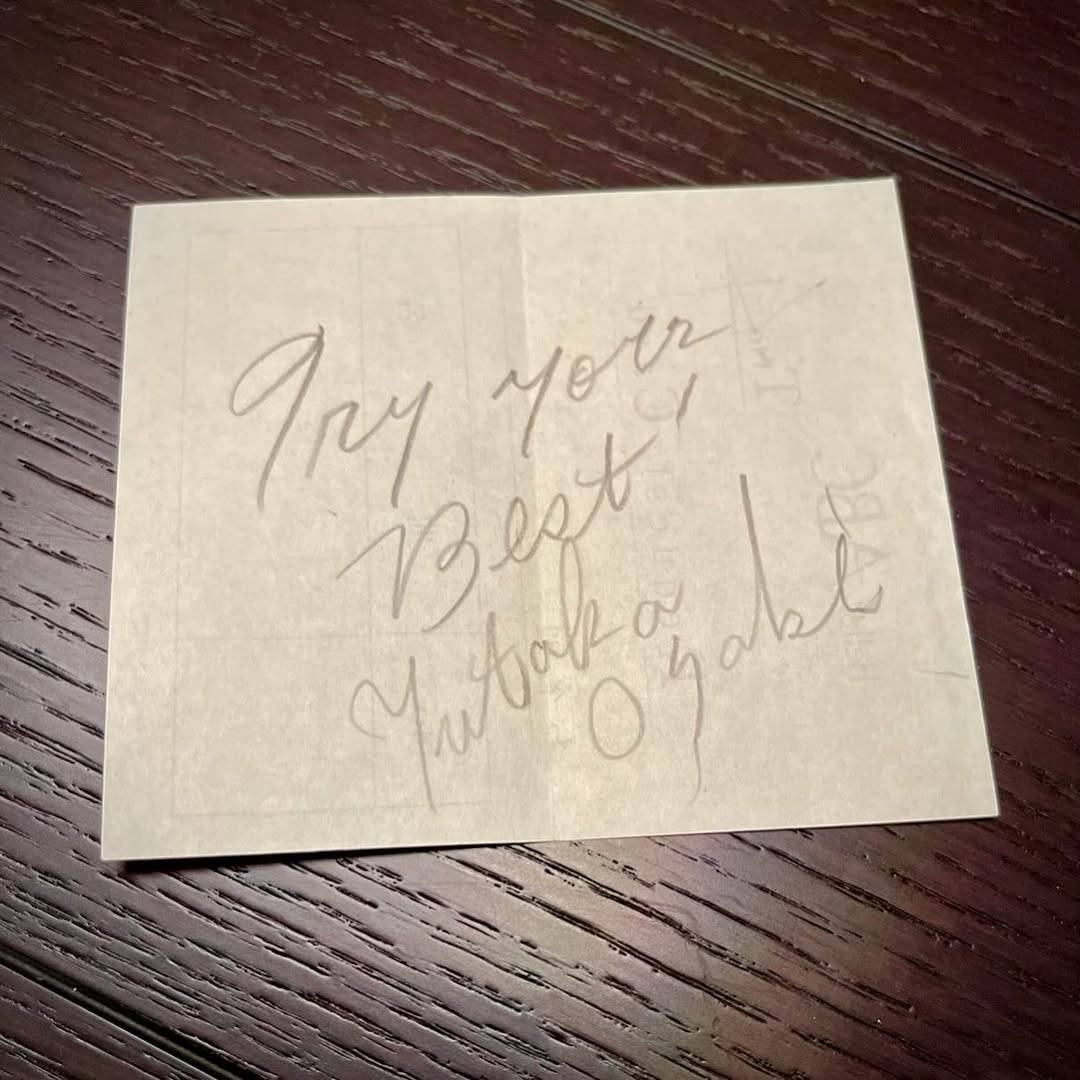 Try your
Best!
Yutaka
Ozaki